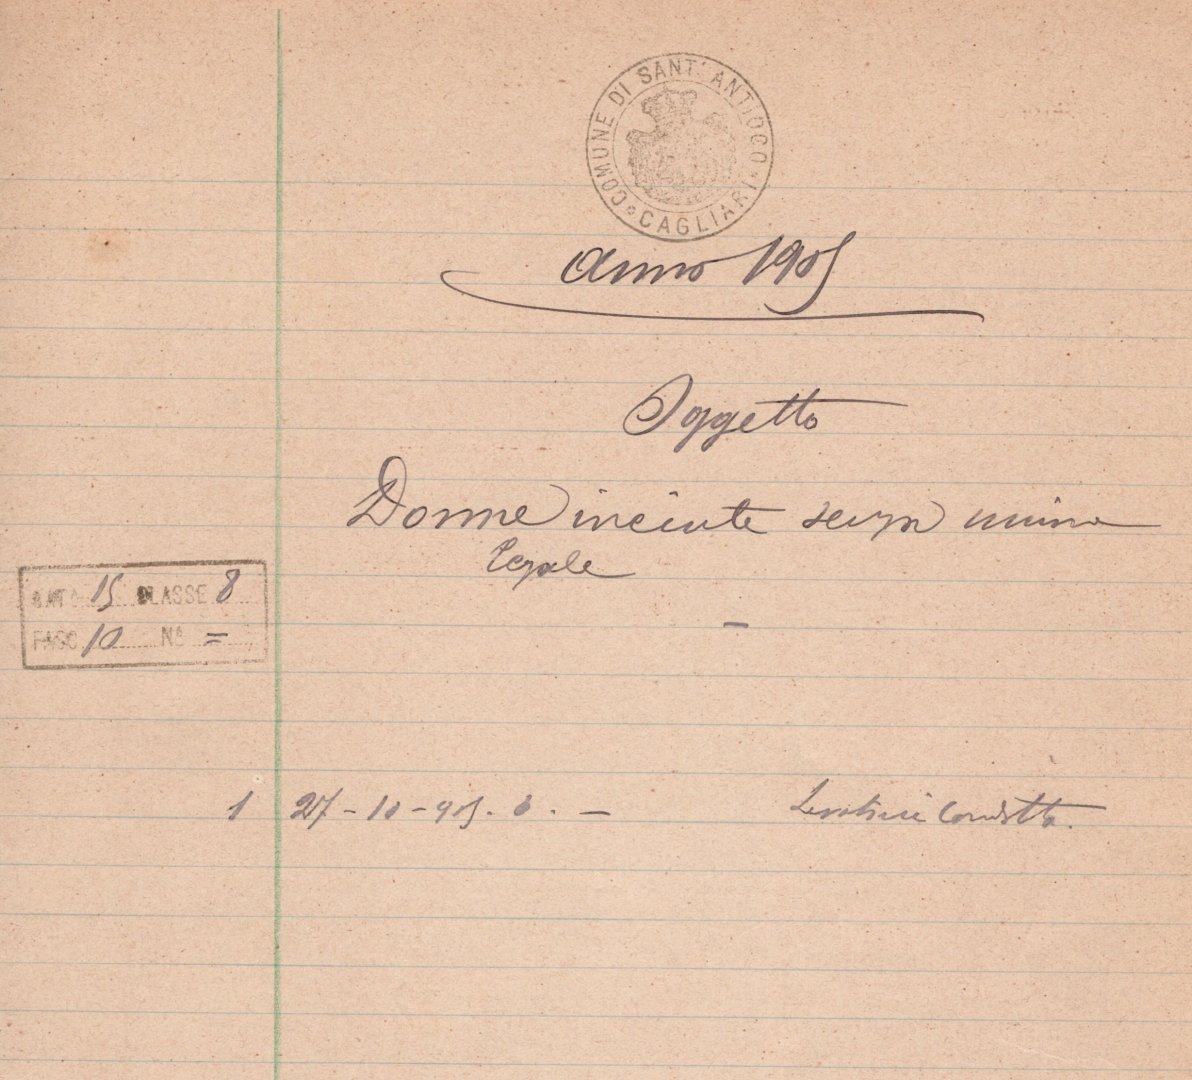 COMUNE DI SANT' ANTIOCO
CAGLIARI
Anno 1905
Oggetto
Donne incinte senza unione
legale
15 CLASSE 8
FASC 10 N° =
1 27-10-905. — Levatrice Condotta.